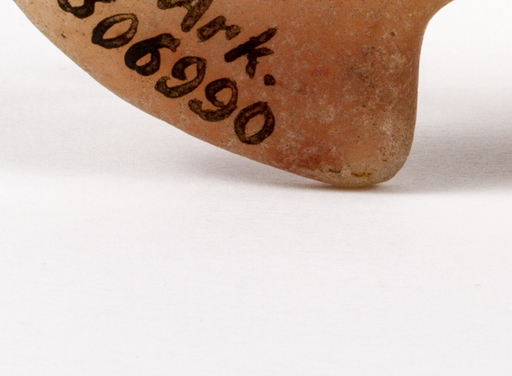 Ark.
306990